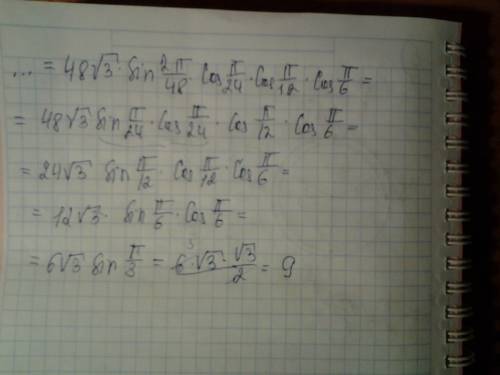 ... = 48√3 · sin 2π/48 · cos π/24 · cos π/12 · cos π/6 =
= 48√3 sin π/24 · cos π/24 · cos π/12 · cos π/6 =
= 24√3 sin π/12 · cos π/12 · cos π/6 =
= 12√3 · sin π/6 · cos π/6 =
= 6√3 sin π/3 = 6·√3·√3/2 = 9